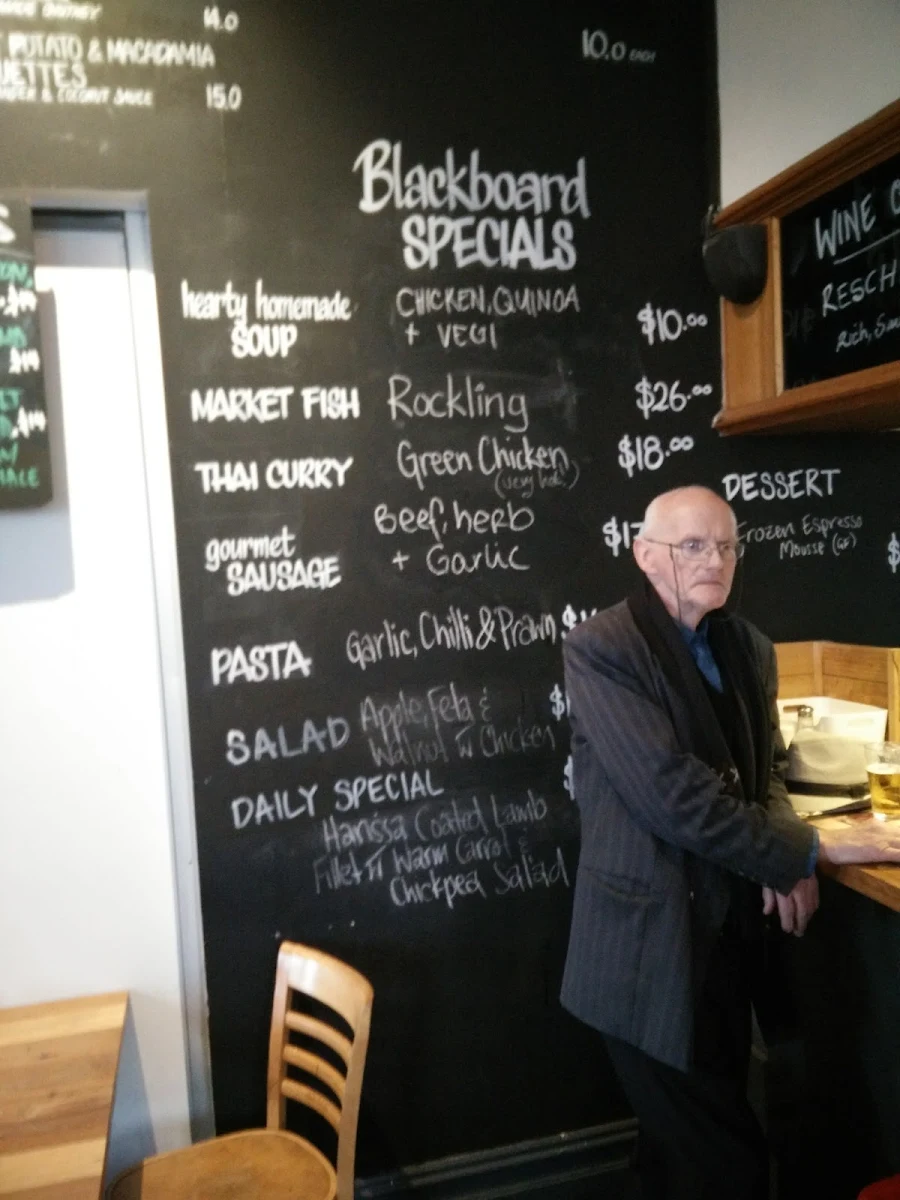 14.0
POTATO & MACADAMIA
& COCONUT SAUCE 15.0
10.0 EACH
Blackboard
SPECIALS
hearty homemade
SOUP
CHICKEN, QUINOA
+ VEGI
$10.00
MARKET FISH Rockling $26.00
THAI CURRY Green Chicken $18.00
(very hot)
gourmet
SAUSAGE
Beef, herb
+ Garlic
PASTA Garlic, Chilli & Prawn $
SALAD Apple, Feta &
Walnut w Chicken
DAILY SPECIAL
Harissa Coated Lamb
Fillet w Warm Carrot &
Chickpea Salad
WINE
RESCH
Rich,
DESSERT
Frozen Espresso
Mousse (GF)
$